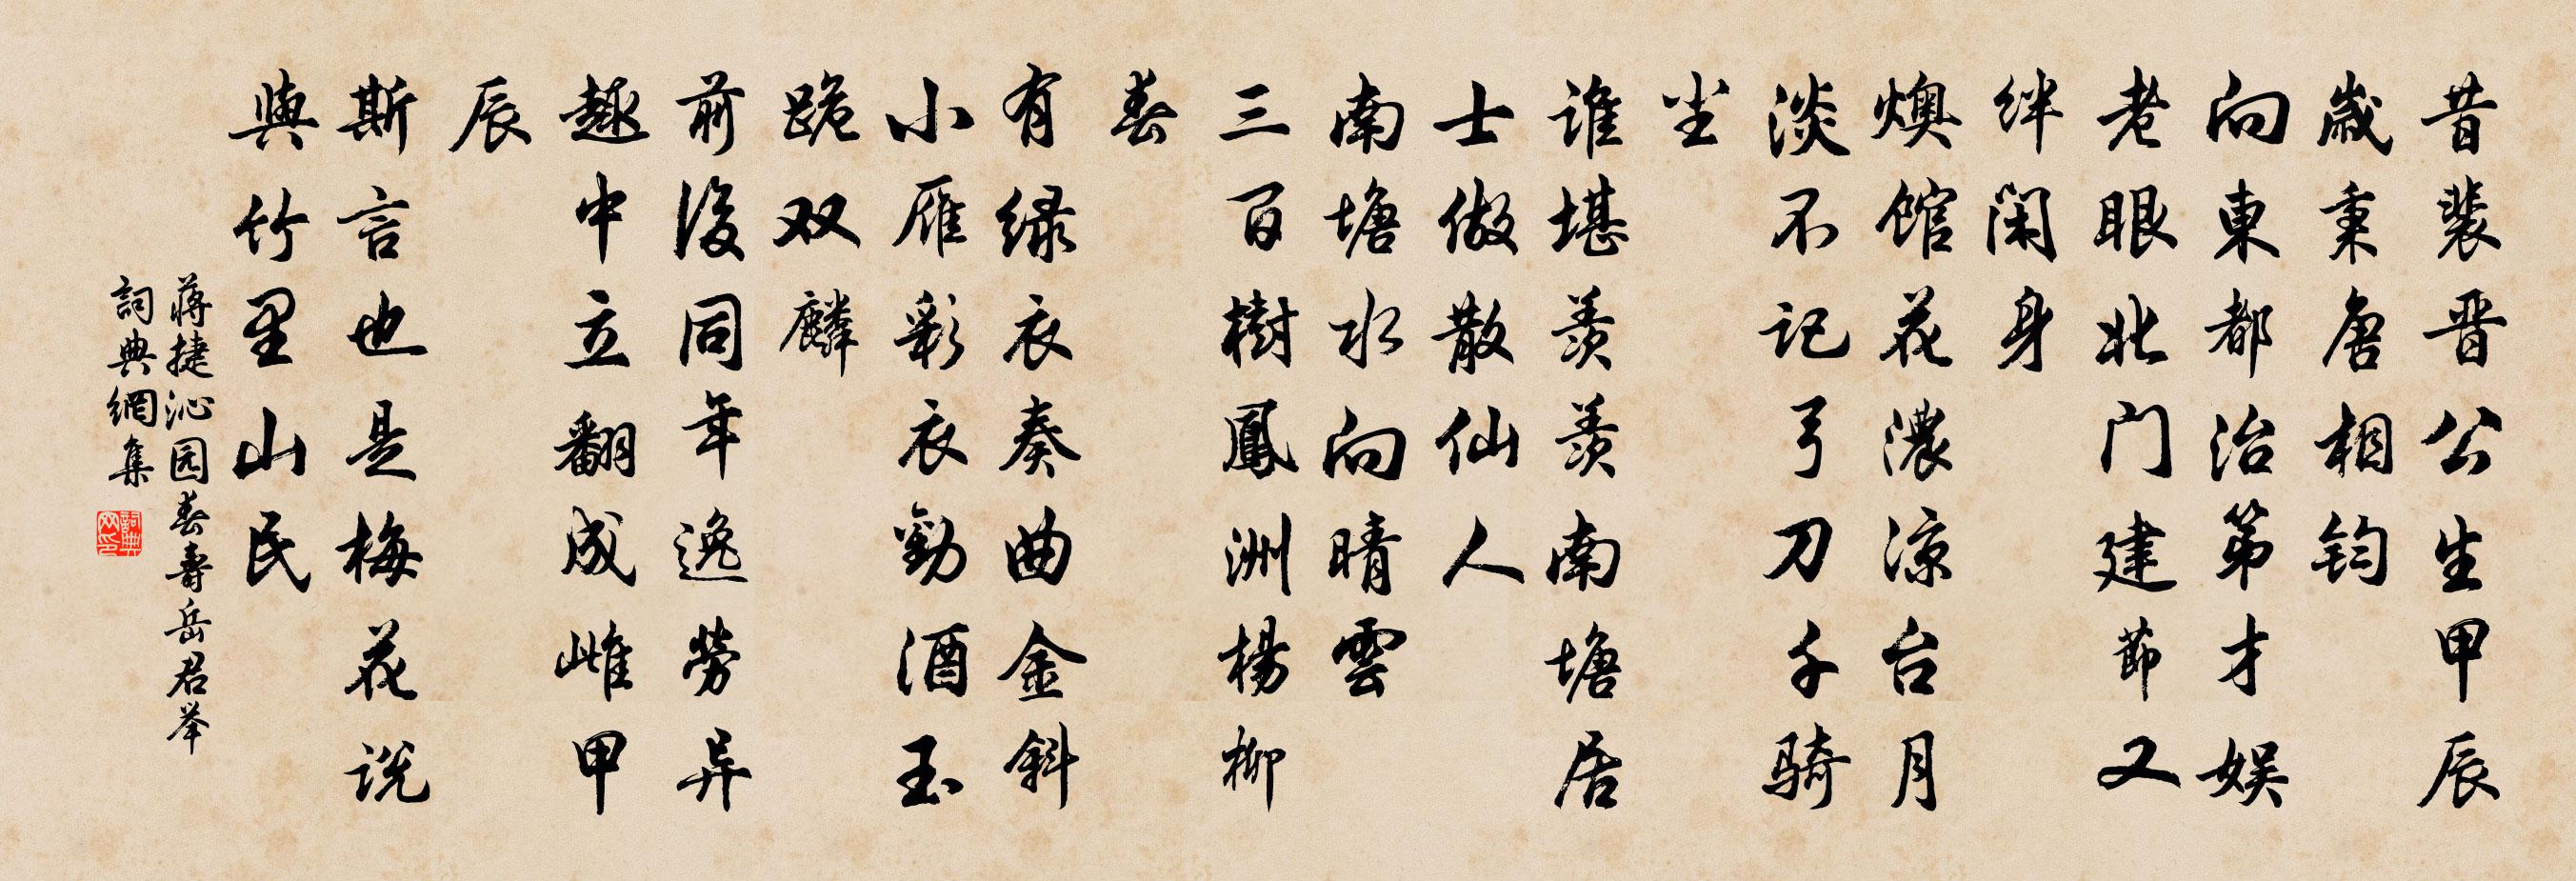 昔裴晋公生甲辰
歲秉唐相钧
向東都治第才娱
老眼北门建節又
绊闲身
燠馆花濃凉台月
淡不记弓刀千骑
尘
谁堪羡羡南塘居
士做散仙人
南塘水向晴雲
三百樹鳳洲楊柳
春
有绿衣奏曲金斜
小雁彩衣勸酒玉
跪双麟
前後同年逸勞异
趣中立翻成雌甲
辰
斯言也是梅花说
與竹里山民
蒋捷沁园春寿岳君举
詞典網集
詞典
网印